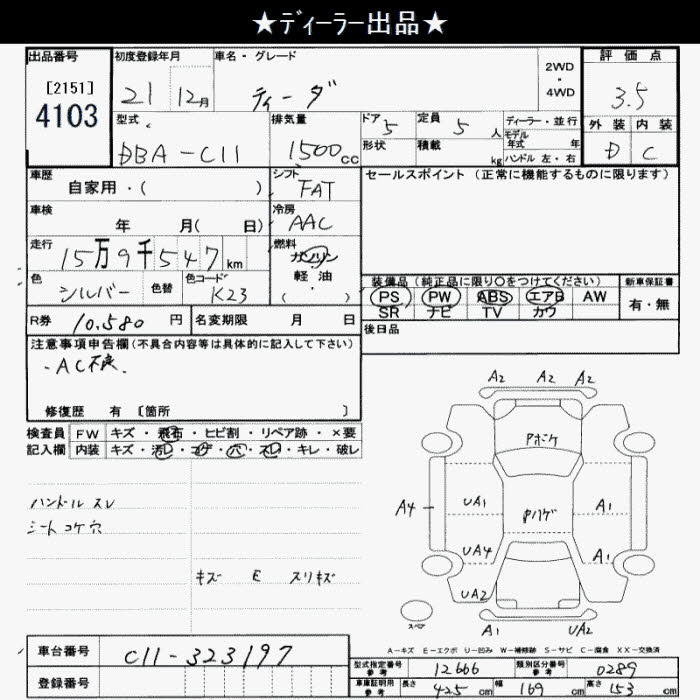 ★ディーラー出品★
出品番号
[2151]
4103
初度登録年月
21 12月
車名・グレード
ティーダ
2WD
・
4WD
評価点
3.5
外装 内装
D C
型式
DBA-C11
排気量
1500cc
ドア 5
形状
定員 5人
積載 kg
ディーラー・並行
モデル年式 年
ハンドル 左・右
車歴
自家用・( )
シフト
FAT
セールスポイント (正常に機能するものに限ります)
車検
年 月( 日)
冷房
AAC
走行
15万9千547km
燃料
ガソリン
軽油
( ・ )
色
シルバー
色替
色コード
K23
装備品 (純正品に限り○をつけてください)
PS PW ABS エアB AW
SR ナビ TV カワ
新車保証書
有・無
R券 10,580 円
名変期限 月 日
後日品
注意事項申告欄(不具合内容等は具体的に記入して下さい)
・AC不良.
修復歴 有 [箇所 ]
検査員
記入欄
FW キズ・飛石・ヒビ割・リペア跡・×要
内装 キズ・汚レ・コゲ・穴・スレ・キレ・破レ
ハンドル スレ
シート コゲ穴
キズ E スリキズ
A2 A2 A2
Pボケ
A4
UA1
Pハゲ
A1
UA4
A1
UA2
スペア
A1 UA2
A-キズ E-エクボ U-凹み W-補修跡 S-サビ C-腐食 XX-交換済
車台番号
C11-323197
登録番号
型式指定番号
参考
12666
類別区分番号
参考
0289
車庫証明用
参考
長さ 425 cm
幅 169 cm
高さ 153 cm